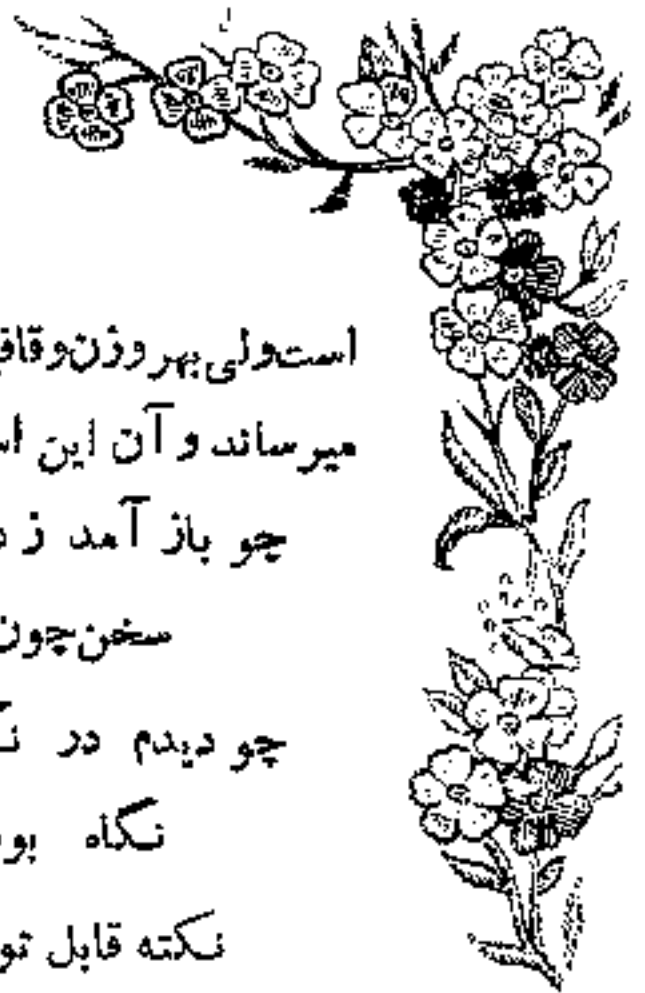 است‌ولی‌بهر وزن‌و
میرساند و آن این
چو باز آمد ز
سخن‌چون
چو دیدم در
نگاه
نکته قابل